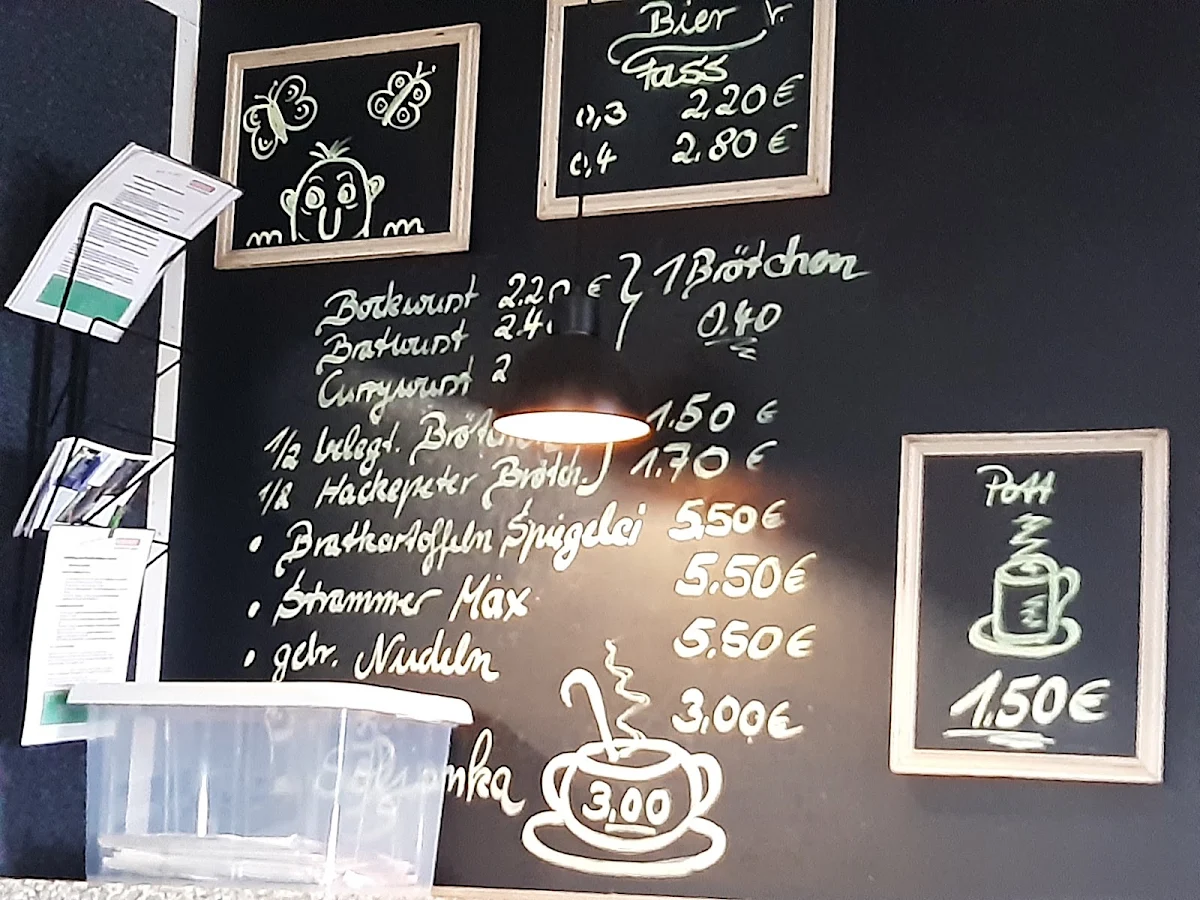 Bier
Fass
0,3 2.20 €
0,4 2.80 €
Bockwurst 2.20 € } 1 Brötchen
Bratwurst 2.4 0.40
Currywurst 2
1/2 belegt. Bröt 1.50 €
1/2 Hackepeter Brötch. 1.70 €
• Bratkartoffeln Spiegelei 5.50 €
• Strammer Max 5.50 €
• gebr. Nudeln 5.50 €
3,00 €
Soljanka 3,00
Pott
1,50 €